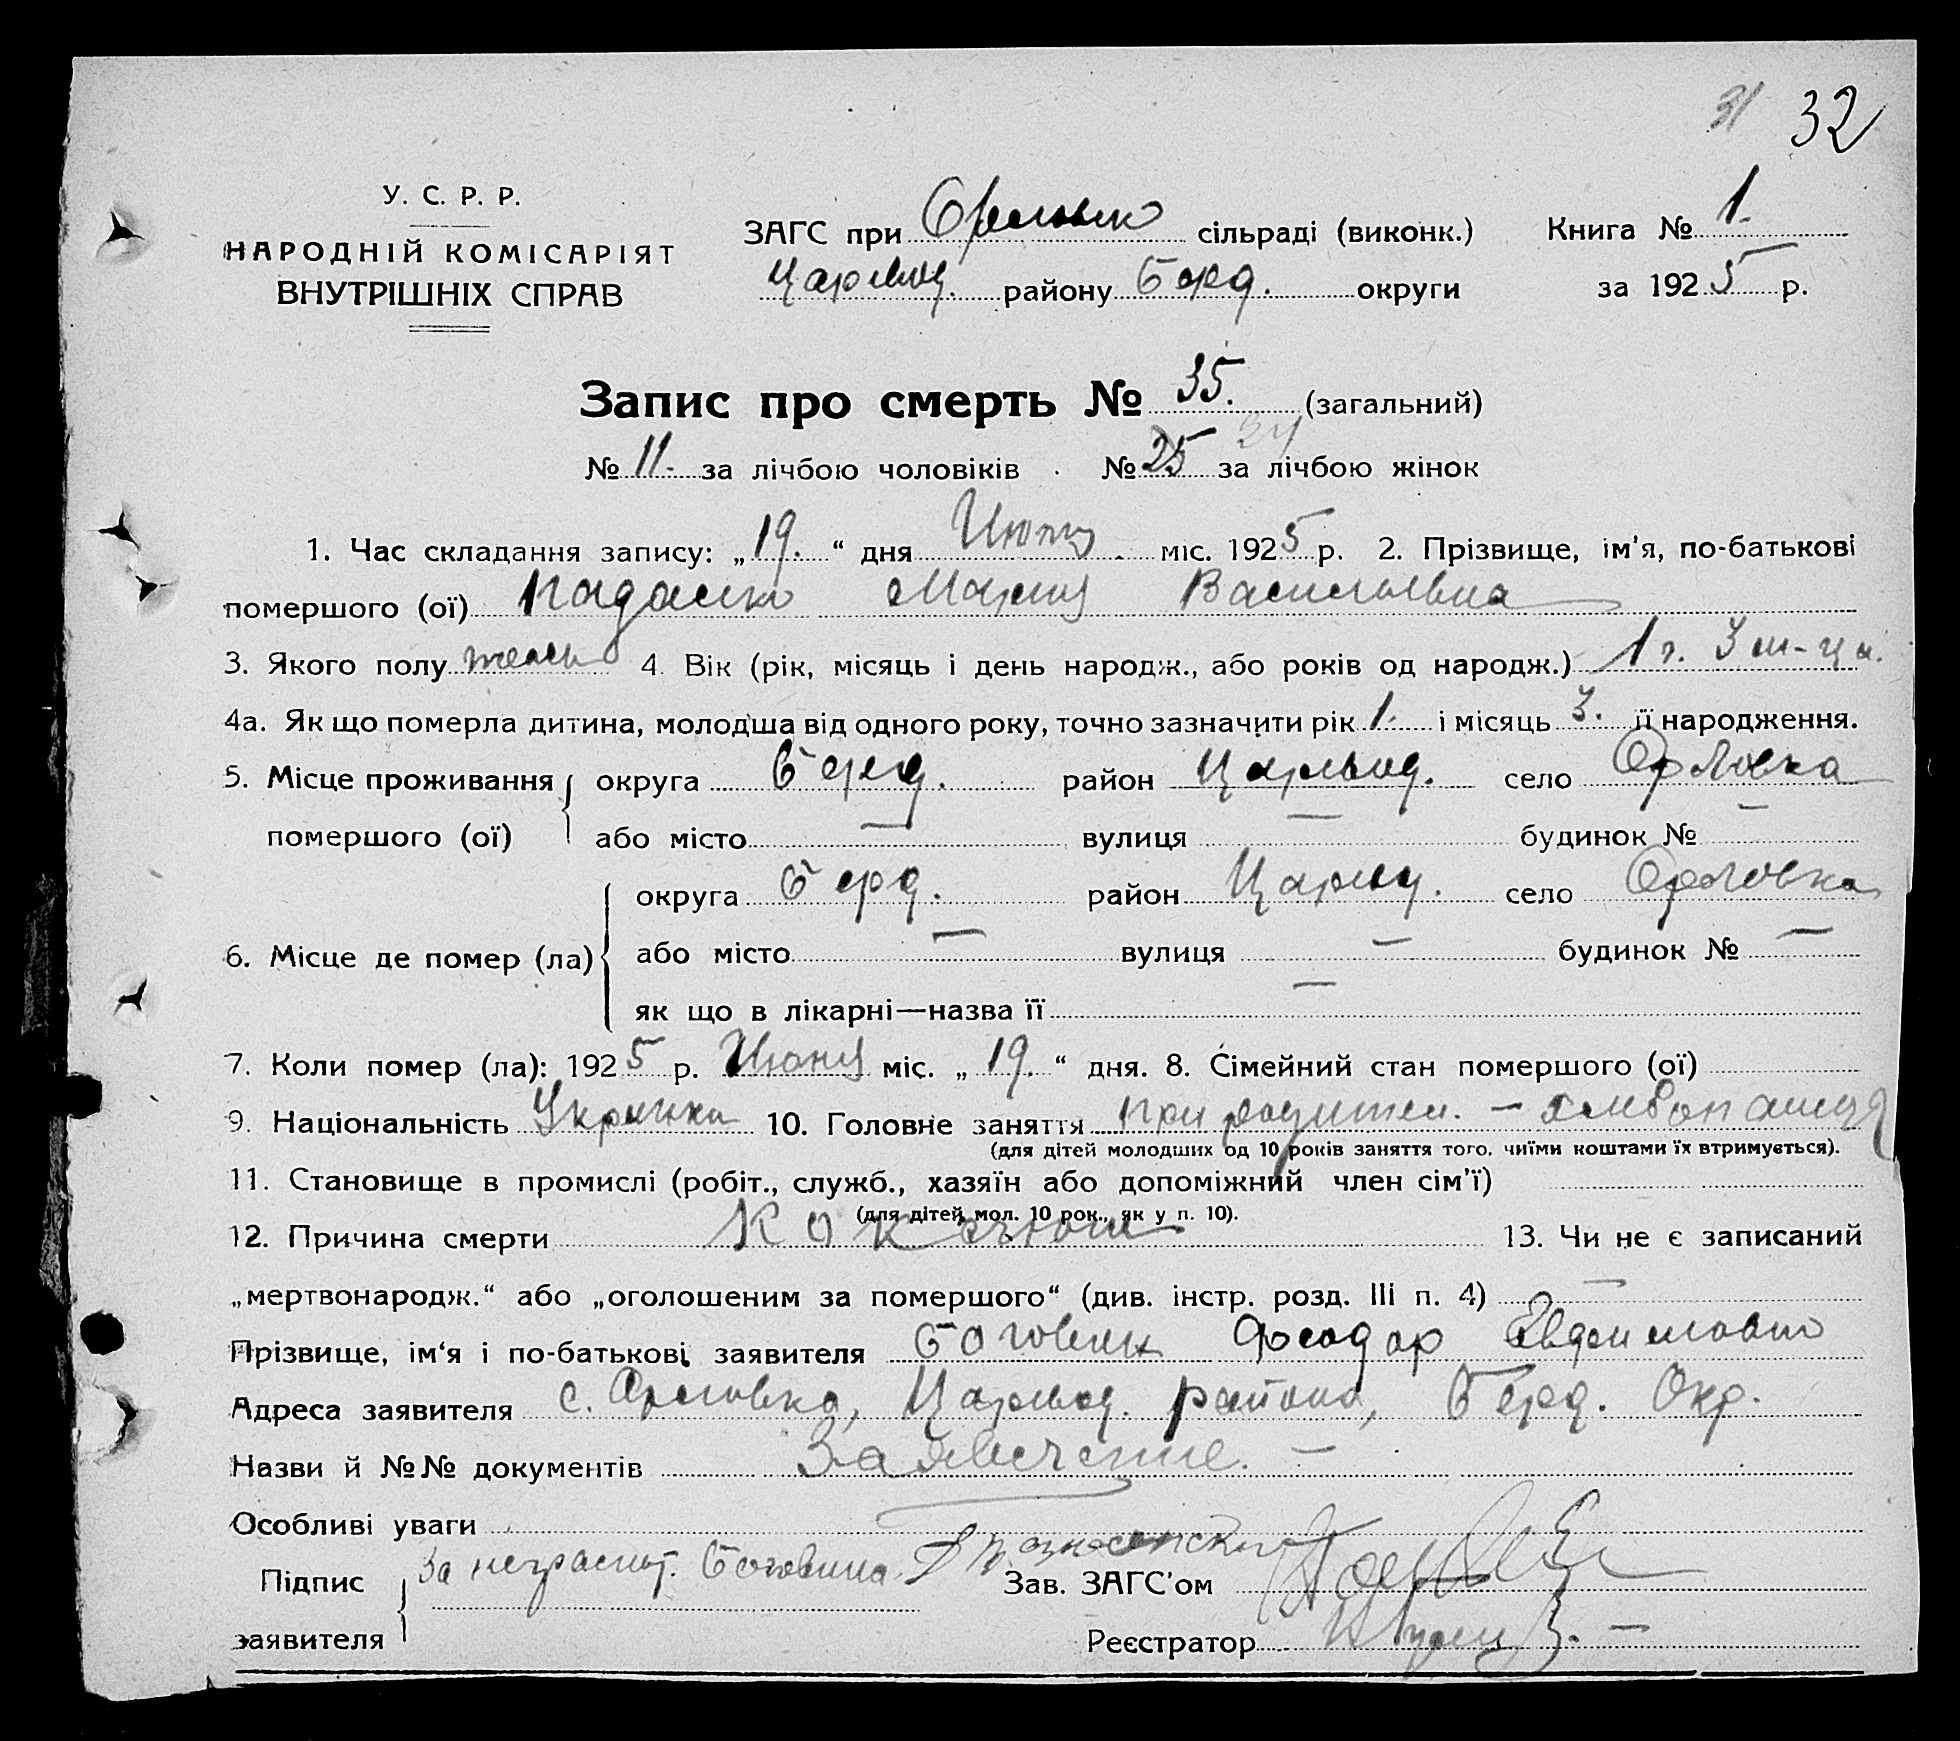 31 32
У. С. Р. Р.
НАРОДНІЙ КОМІСАРІЯТ
ВНУТРІШНІХ СПРАВ
ЗАГС при сільраді (виконк.)
района Берд. округи
Книга № 1.
за 1925 р.
Запис про смерть № 35. (загальний)
№ 11. за лічбою чоловіків № 25 34 за лічбою жінок
1. Час складання запису: „19.“ дня Июня міс. 1925 р. 2. Прізвище, ім'я, по-батькові
помершого (ої) Мария Васильевна
3. Якого полу женск 4. Вік (рік, місяць і день народж., або років од народж.) 1 г. 3 м-ца.
4а. Як що померла дитина, молодша від одного року, точно зазначити рік 1. і місяць 3. її народження.
5. Місце проживання помершого (ої) округа Берд. район Царевод. село Орловка
або місто — вулиця — будинок № —
6. Місце де помер (ла) округа Берд. район село Орловка
або місто — вулиця — будинок № —
як що в лікарні—назва її —
7. Коли помер (ла): 1925 р. Июня міс. „19.“ дня. 8. Сімейний стан помершого (ої)
9. Національність Украинка 10. Головне заняття при родител. — хлебопашця
(для дітей молодших од 10 років заняття того, чиїми коштами їх втримується).
11. Становище в промислі (робіт., служб., хазяїн або допоміжний член сім'ї)
(для дітей мол. 10 рок., як у п. 10).
12. Причина смерти Коклюш 13. Чи не є записаний
„мертвонародж.“ або „оголошеним за помершого“ (див. інстр. розд. III п. 4) —
Прізвище, ім'я і по-батькові заявителя Феодор
Адреса заявителя с. Орловка, Царевод. района, Берд. Окр.
Назви й №№ документів Заявление. —
Особливі уваги
Підпис заявителя За неграмот. Зав. ЗАГС'ом
Реєстратор